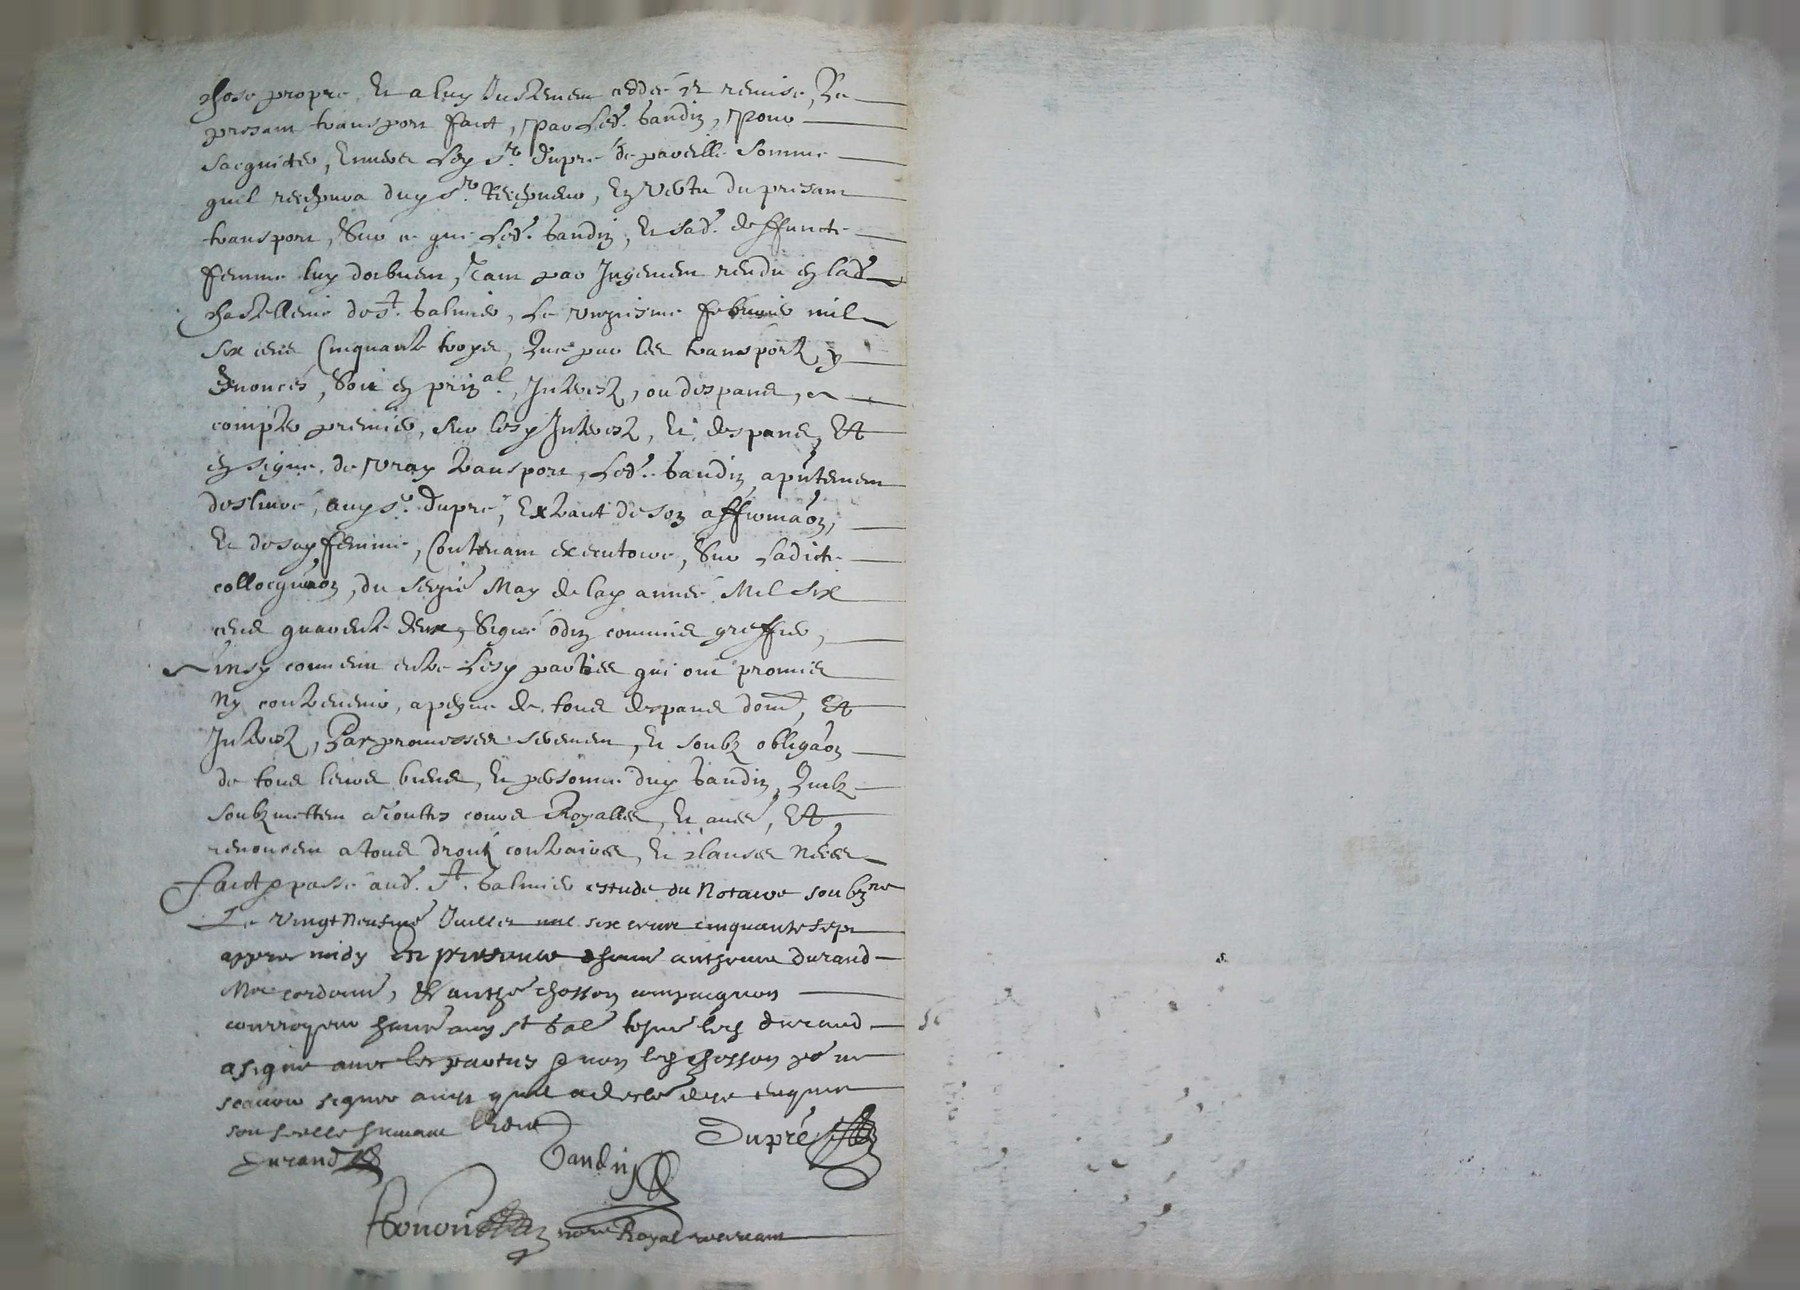 chose propre, Et a luy Justemem ceddee et remise, Le
presam transport faict, par led. baudin, pour
sacquiter, Envers ledy sr. dupre de pareille somme
quil recepvra dudy sr. Recepveur, En vertu du presam
transport, Sur ce que led. baudin, Et sad. deffuncte
femme luy doibvem, tam par Jugemem rendu en lad.
chastellenie de st. balmier, Le ... febvrier mil
six cens Cinquante troys, Que par les transportz, y
Enonces, Soit en prinal., Interestz, ou despans, a
compter premier, sur lesy Interestz, Et despans, Et
en signe de vray transport, Led. baudin a pntemem
deslivré, audy sr. dupre, Extraict de son affirmaon,
Et de say femme, Contenam executoire, Sur ladicte
collocquaon, du ... May de lay année Mil six
cens quarente deux, Signé odin commis greffier,
Ainsy convenu entre lesy parties qui om promis
Ny contrevenir, a peyne de tous despans dom., Et
Interestz, Par promesses seremem, Et soubz obligaon
de tous leurs biens, Et personne dudy baudin, Quilz
soubzmettem a toutes cours Royalles, Et aues, Et
renoncem a tous droitz contraires, Et clauses neces
faict & passe aud. st. balmier estude du Notaire soubzne
Le vingt neufme Juillet mil six cens cinquante sept
appres midy En presence dhonne anthoine durand
Mre cordonr, & anthe chosson compaignon
courroyeur habit audy st bal tesms led durand
a signe avec les parties & non led chosson po ne
scavoir signer ainsy quil a declé de ce enquis
... Chose
dupré
durand
baudin
... nore Royal recevam